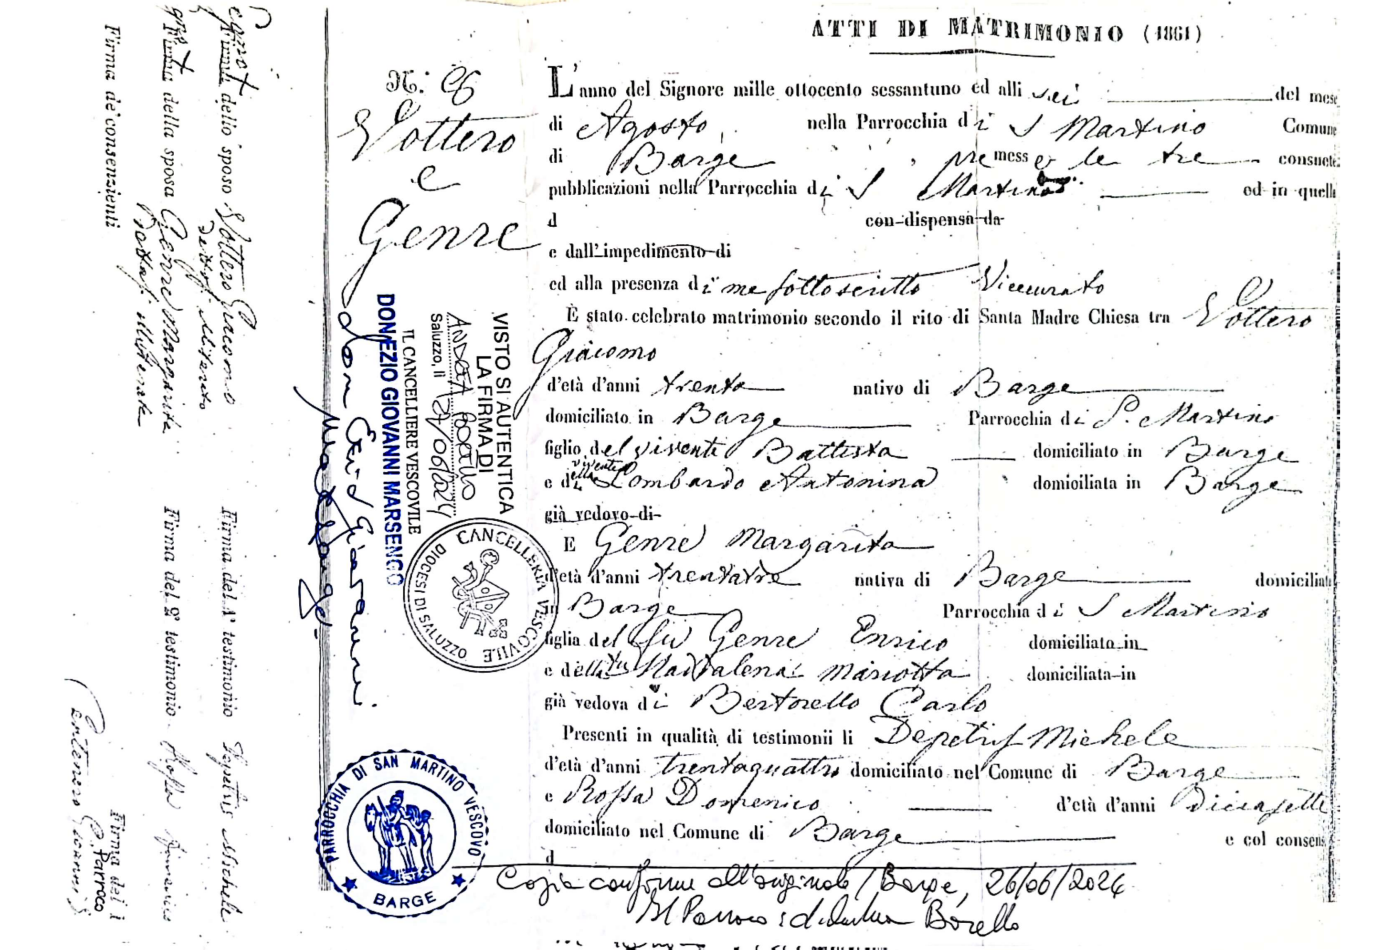 ATTI DI MATRIMONIO (1861)
N.: 26
Vottero
e
Genre
L'anno del Signore mille ottocento sessantuno ed alli sei del mese
di Agosto nella Parrocchia di S Martino Comune
di Barge premesse le tre consuete
pubblicazioni nella Parrocchia di S Martino ed in quelle
d con dispensa da
e dall'impedimento di
ed alla presenza di me sottoscritto Vicecurato
È stato celebrato matrimonio secondo il rito di Santa Madre Chiesa tra Vottero
Giacomo
d'età d'anni trenta nativo di Barge
domiciliato in Barge Parrocchia di S. Martino
figlio del vivente Battista domiciliato in Barge
e della vivente Lombardo Antonina domiciliata in Barge
già vedovo di
E Genre Margarita
d'età d'anni trentatre nativa di Barge domiciliata
in Barge Parrocchia di S Martino
figlia del fu Genre Enrico domiciliato in
e della fu Maddalena Mariotta domiciliata in
già vedova di Bertorello Carlo
Presenti in qualità di testimonii li Depetris Michele
d'età d'anni trentaquattro domiciliato nel Comune di Barge
e Rossa Domenico d'età d'anni diciasette
domiciliato nel Comune di Barge e col consens
d
Copia conforme all'originale / Barge, 26/06/2024
Il Parroco: Borello
VISTO SI AUTENTICA
LA FIRMA DI
Saluzzo, lì 27/06/2024
IL CANCELLIERE VESCOVILE
DON EZIO GIOVANNI MARSENGO
CANCELLERIA VESCOVILE
DIOCESI DI SALUZZO
PARROCCHIA DI SAN MARTINO VESCOVO
BARGE
Firma dello sposo Vottero Giacomo
Firma della sposa Genre Margarita
Firma de' consenzienti
Firma del 1° testimonio Depetris Michele
Firma del 2° testimonio Rossa Domenico
Firma del
Parroco